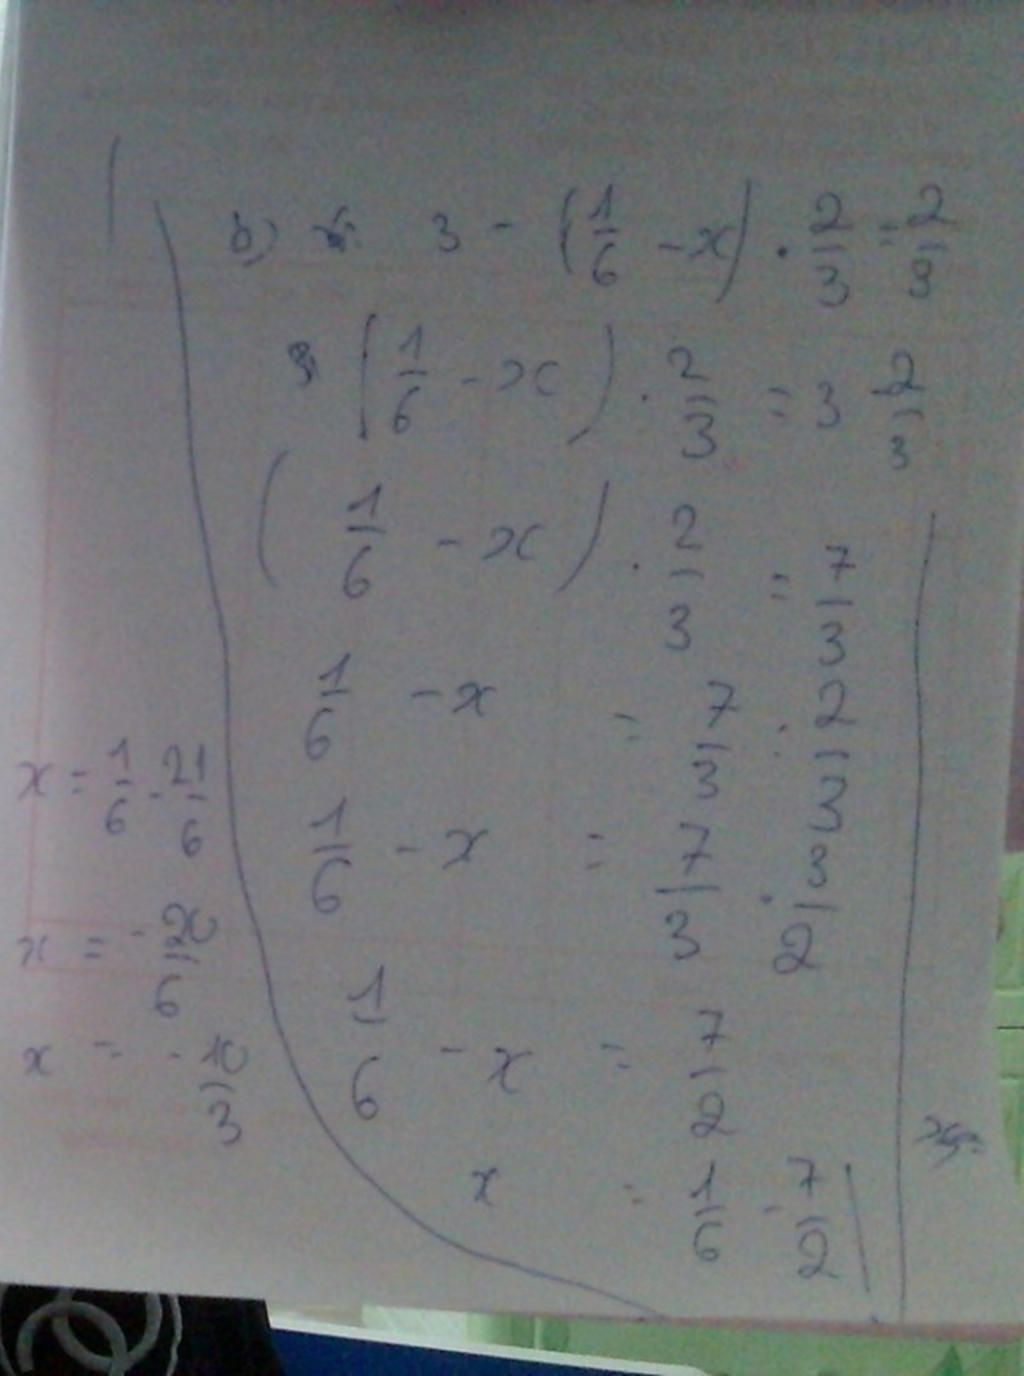 b) 3 - (1/6 - x) . 2/3 = 2/3
(1/6 - x) . 2/3 = 3 - 2/3
(1/6 - x) . 2/3 = 7/3
1/6 - x = 7/3 : 2/3
1/6 - x = 7/3 . 3/2
1/6 - x = 7/2
x = 1/6 - 7/2
x = 1/6 - 21/6
x = - 20/6
x = - 10/3